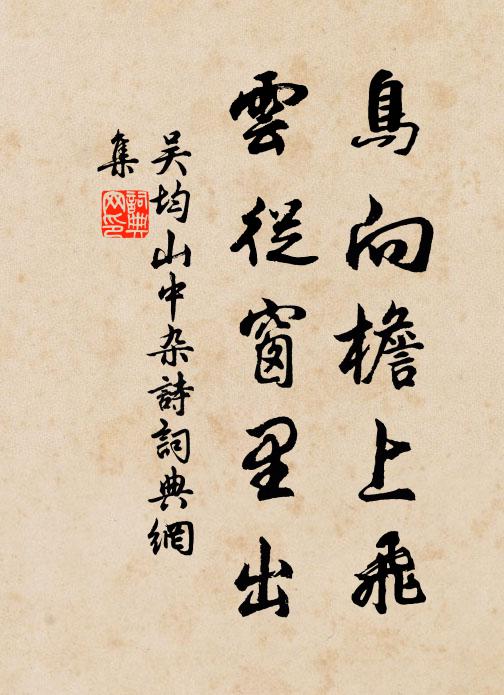 鳥向檐上飛
雲從窗里出
吴均山中杂詩詞典網
集
詞典
网印